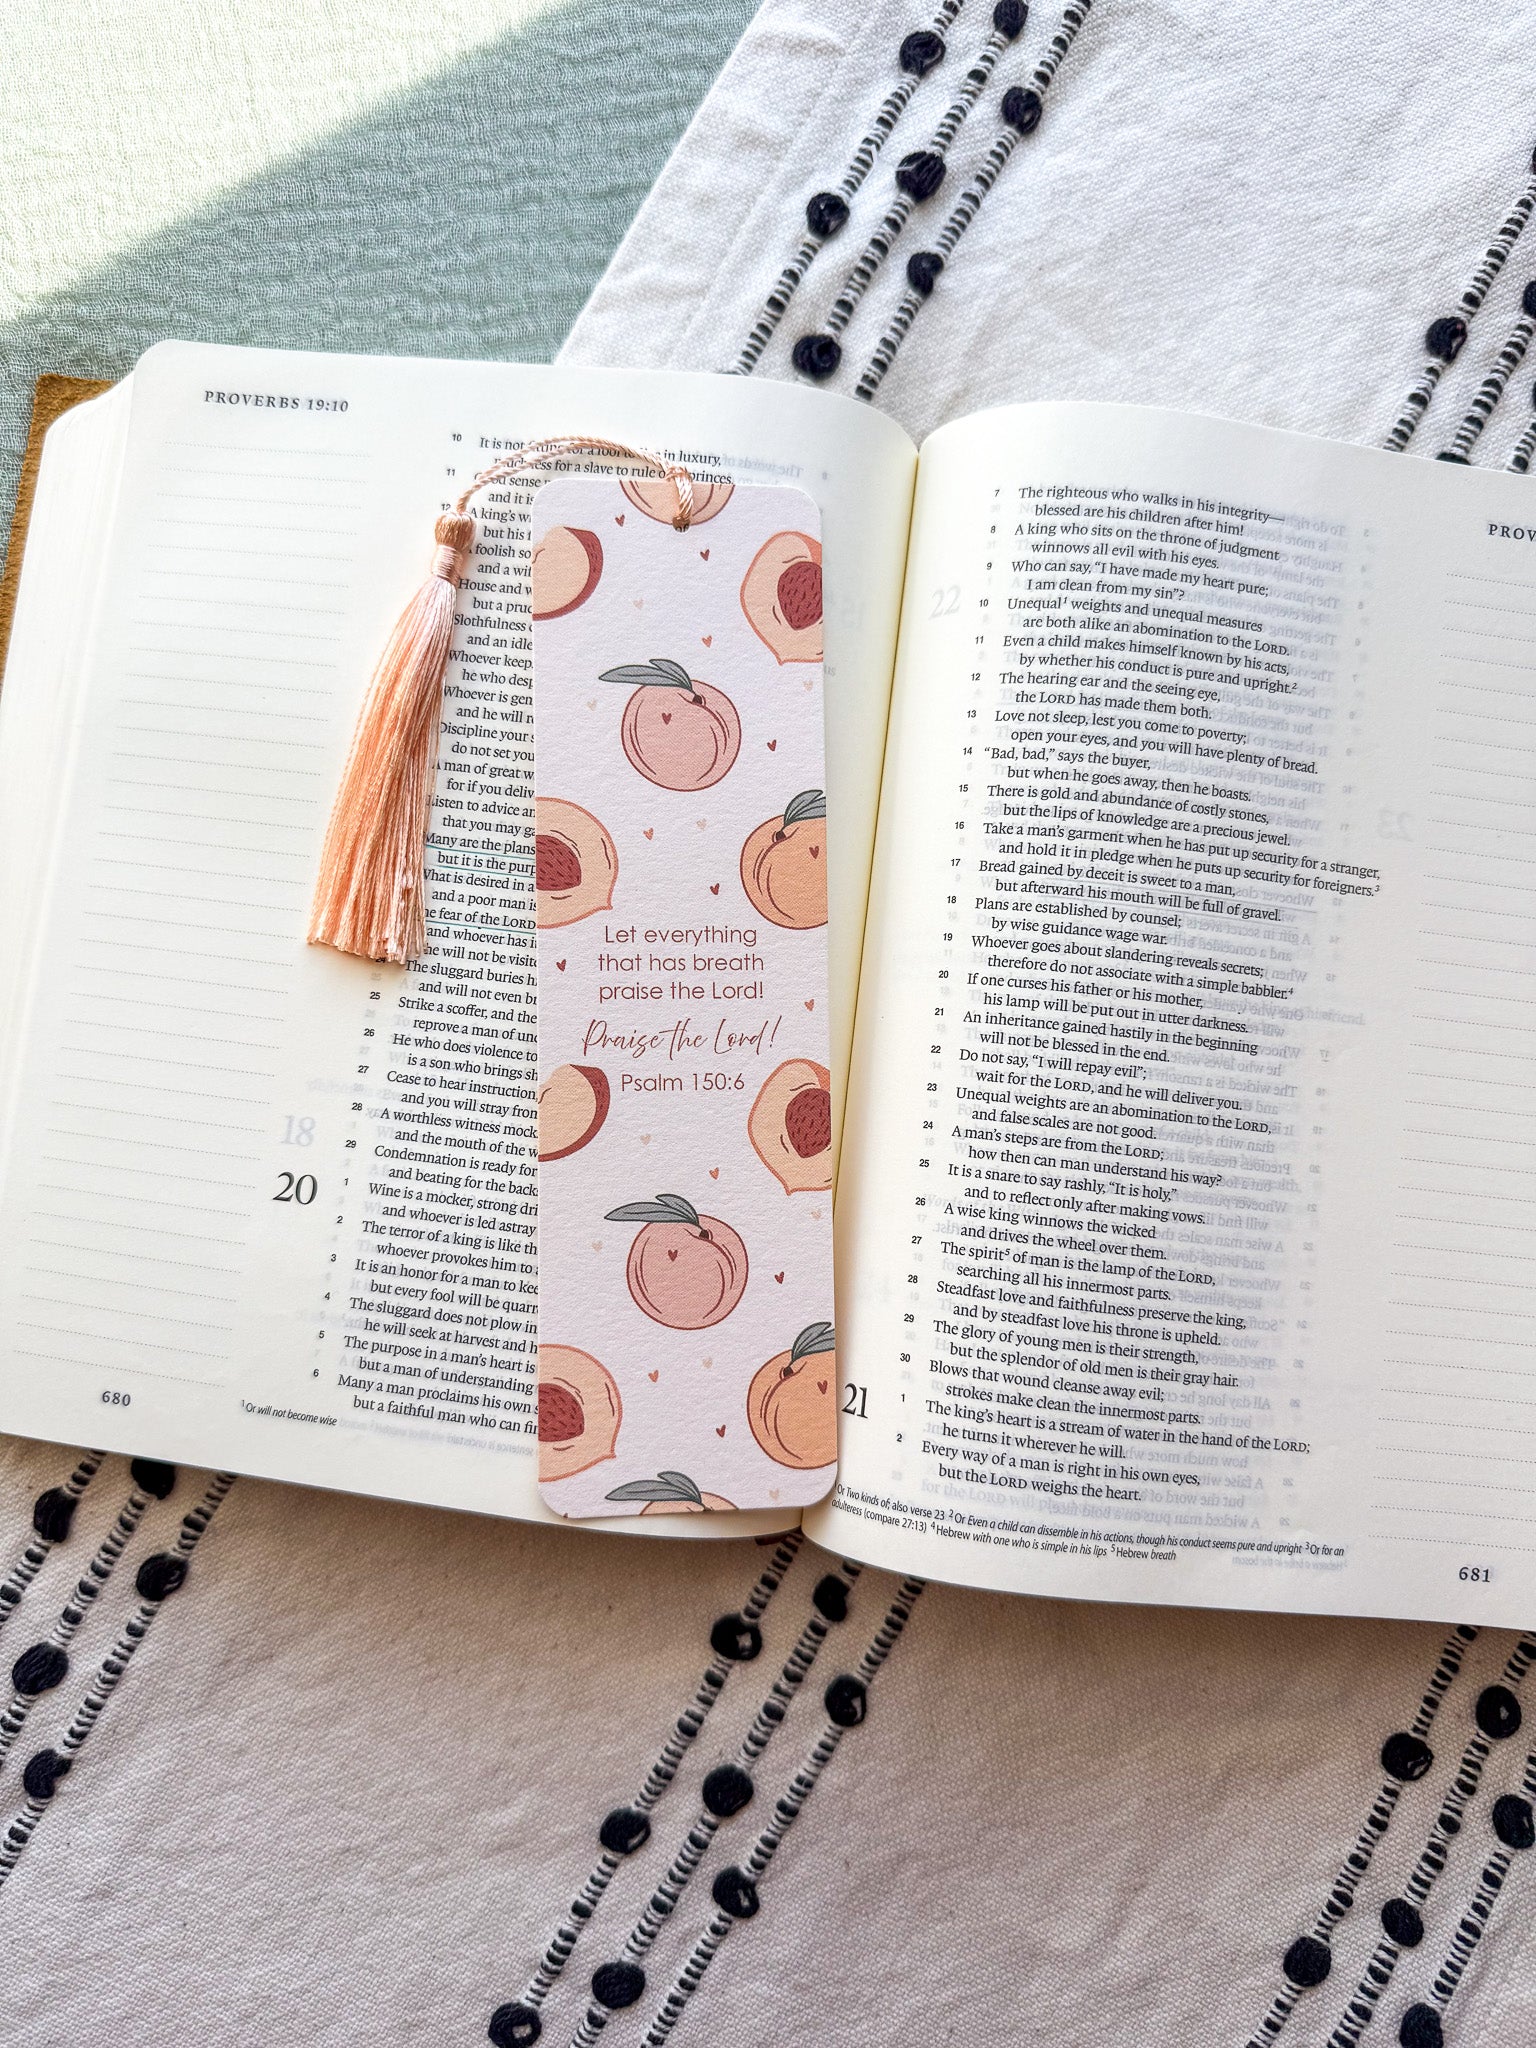 PROVERBS 19:10
10 It is not for a fool to live in luxury,
much less for a slave to rule over princes.
11 Good sense
and it is
12 A king's w
but his
foolish so
and a wi
House and w
but a pruc
Slothfulness
and an idle
Whoever keep
he who desp
Whoever is gen
and he will r
Discipline your s
do not set you
A man of great w
for if you deliv
Listen to advice an
that you may ga
Many are the plans
but it is the purp
What is desired in a
and a poor man is
The fear of the LORD
and whoever has i
he will not be visite
24 The sluggard buries h
and will not even br
25 Strike a scoffer, and the
reprove a man of und
26 He who does violence to
is a son who brings sh
27 Cease to hear instruction,
and you will stray from
28 A worthless witness mock
and the mouth of the w
29 Condemnation is ready for
and beating for the back
20
1 Wine is a mocker, strong dri
and whoever is led astray
2 The terror of a king is like th
whoever provokes him to
3 It is an honor for a man to kee
but every fool will be quarr
4 The sluggard does not plow in
he will seek at harvest and h
5 The purpose in a man's heart is
but a man of understanding
6 Many a man proclaims his own s
but a faithful man who can fin
680
1 Or will not become wise
Let everything
that has breath
praise the Lord!
Praise the Lord!
Psalm 150:6
PROV
7 The righteous who walks in his integrity—
blessed are his children after him!
8 A king who sits on the throne of judgment
winnows all evil with his eyes.
9 Who can say, “I have made my heart pure;
I am clean from my sin”?
10 Unequal1 weights and unequal measures
are both alike an abomination to the LORD.
11 Even a child makes himself known by his acts,
by whether his conduct is pure and upright.2
12 The hearing ear and the seeing eye,
the LORD has made them both.
13 Love not sleep, lest you come to poverty;
open your eyes, and you will have plenty of bread.
14 “Bad, bad,” says the buyer,
but when he goes away, then he boasts.
15 There is gold and abundance of costly stones,
but the lips of knowledge are a precious jewel.
16 Take a man's garment when he has put up security for a stranger,
and hold it in pledge when he puts up security for foreigners.3
17 Bread gained by deceit is sweet to a man,
but afterward his mouth will be full of gravel.
18 Plans are established by counsel;
by wise guidance wage war.
19 Whoever goes about slandering reveals secrets;
therefore do not associate with a simple babbler.4
20 If one curses his father or his mother,
his lamp will be put out in utter darkness.
21 An inheritance gained hastily in the beginning
will not be blessed in the end.
22 Do not say, “I will repay evil”;
wait for the LORD, and he will deliver you.
23 Unequal weights are an abomination to the LORD,
and false scales are not good.
24 A man's steps are from the LORD;
how then can man understand his way?
25 It is a snare to say rashly, “It is holy,”
and to reflect only after making vows.
26 A wise king winnows the wicked
and drives the wheel over them.
27 The spirit5 of man is the lamp of the LORD,
searching all his innermost parts.
28 Steadfast love and faithfulness preserve the king,
and by steadfast love his throne is upheld.
29 The glory of young men is their strength,
but the splendor of old men is their gray hair.
30 Blows that wound cleanse away evil;
strokes make clean the innermost parts.
21
1 The king's heart is a stream of water in the hand of the LORD;
he turns it wherever he will.
2 Every way of a man is right in his own eyes,
but the LORD weighs the heart.
1 Or Two kinds of; also verse 23 2 Or Even a child can dissemble in his actions, though his conduct seems pure and upright 3 Or for an
adulteress (compare 27:13) 4 Hebrew with one who is simple in his lips 5 Hebrew breath
681